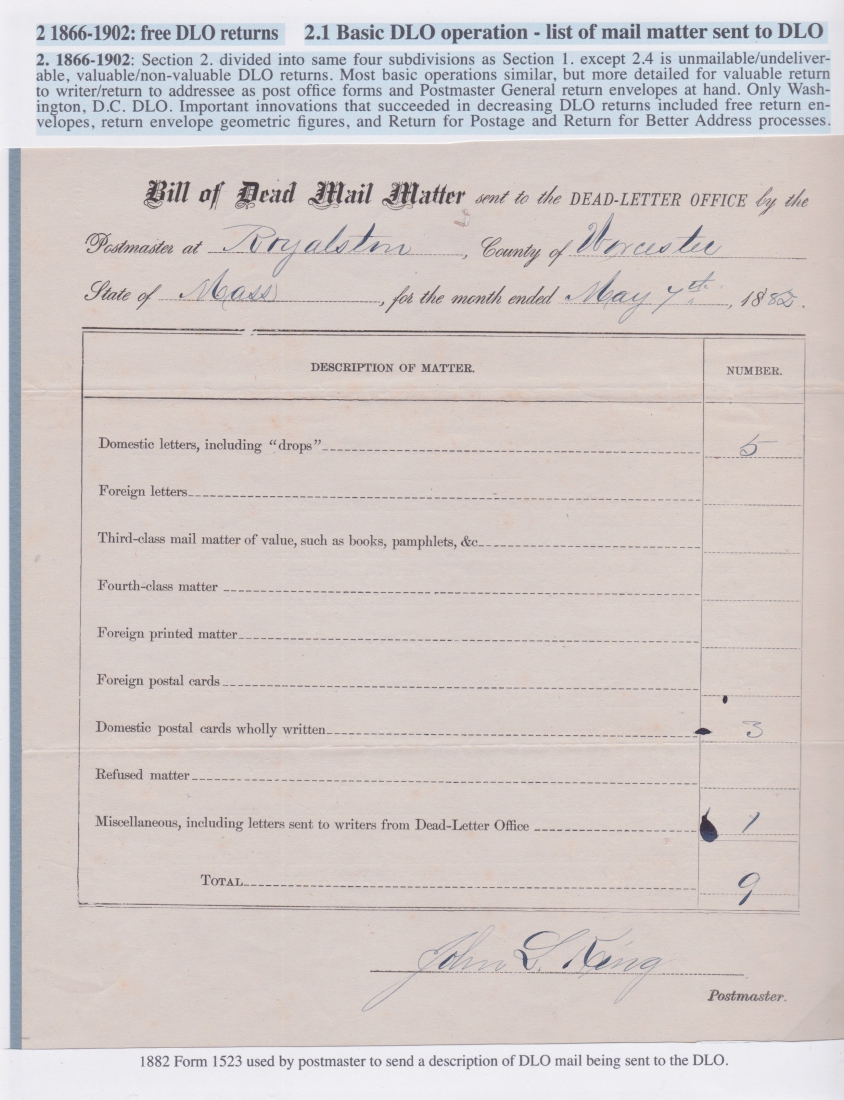 2 1866-1902: free DLO returns 2.1 Basic DLO operation - list of mail matter sent to DLO
2. 1866-1902: Section 2. divided into same four subdivisions as Section 1. except 2.4 is unmailable/undeliver-
able, valuable/non-valuable DLO returns. Most basic operations similar, but more detailed for valuable return
to writer/return to addressee as post office forms and Postmaster General return envelopes at hand. Only Wash-
ington, D.C. DLO. Important innovations that succeeded in decreasing DLO returns included free return en-
velopes, return envelope geometric figures, and Return for Postage and Return for Better Address processes.
Bill of Dead Mail Matter sent to the DEAD-LETTER OFFICE by the
Postmaster at Royalston, County of Worcester
State of Mass, for the month ended May 7th, 1882.
DESCRIPTION OF MATTER. NUMBER.
Domestic letters, including "drops" 5
Foreign letters
Third-class mail matter of value, such as books, pamphlets, &c
Fourth-class matter
Foreign printed matter
Foreign postal cards
Domestic postal cards wholly written 3
Refused matter
Miscellaneous, including letters sent to writers from Dead-Letter Office 1
TOTAL 9
John L. King
Postmaster.
1882 Form 1523 used by postmaster to send a description of DLO mail being sent to the DLO.